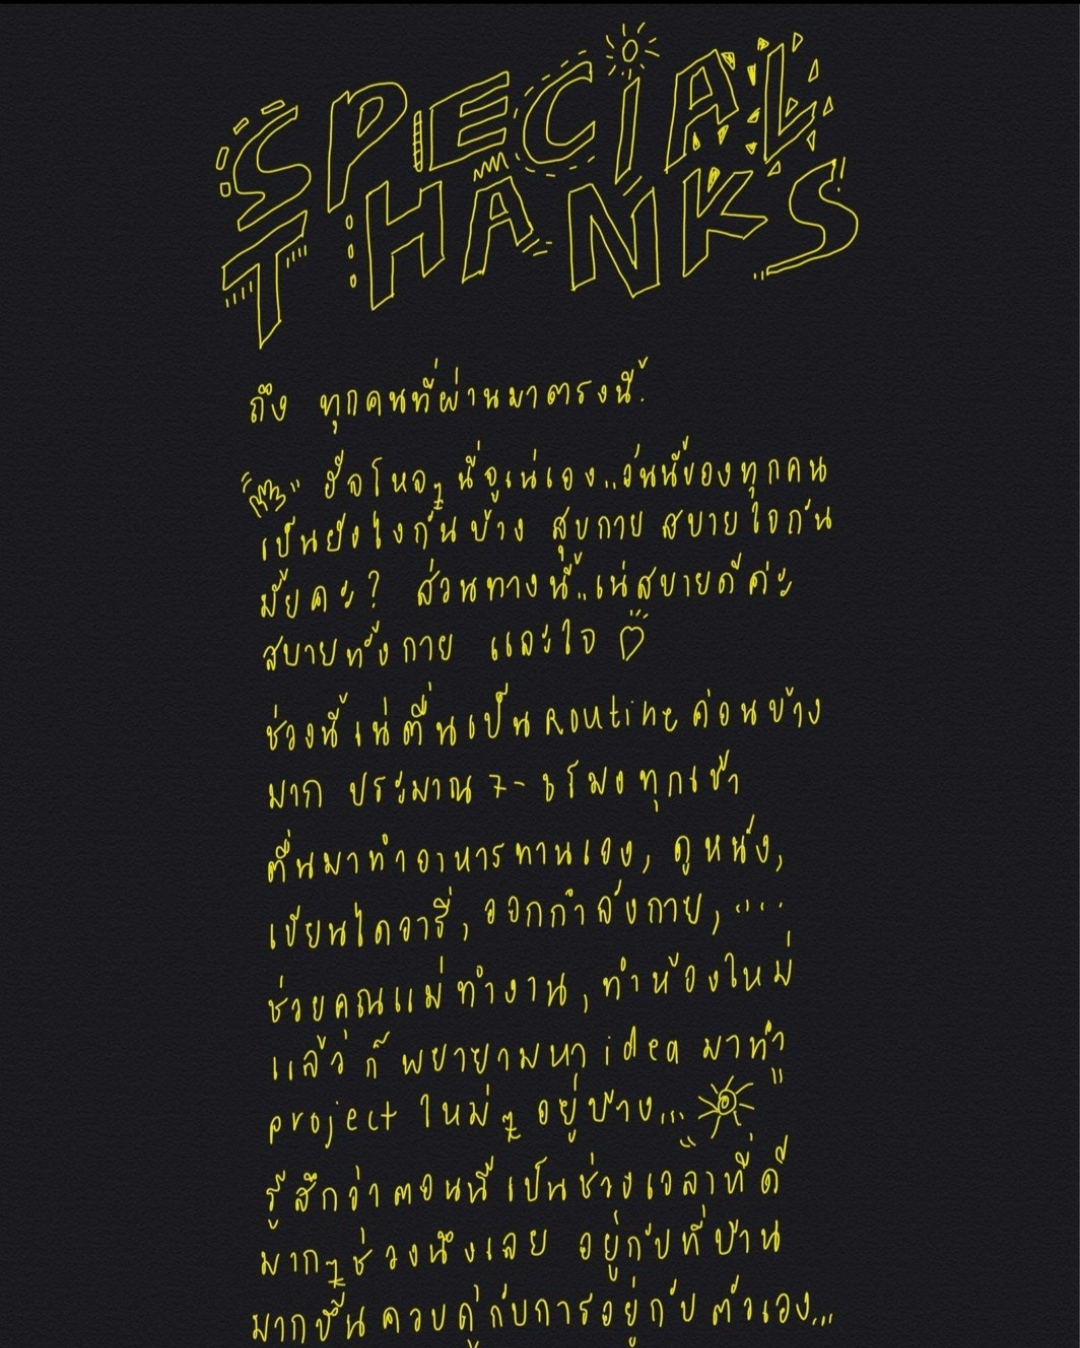 SPECIAL
THANKS
ถึง ทุกคนที่ผ่านมาตรงนี้.
ฮัลโหลๆ นี่จูเน่เอง..วันนี้ของทุกคน
เป็นยังไงกันบ้าง สุขกาย สบายใจกัน
มั้ยคะ? ส่วนทางนี้..เน่สบายดีค่ะ
สบายทั้งกาย และใจ
ช่วงนี้เน่ตื่นเป็น Routine ค่อนข้าง
มาก ประมาณ 7-8 โมงทุกเช้า
ตื่นมาทำอาหารทานเอง, ดูหนัง,
เขียนไดอารี่, ออกกำลังกาย, ....
ช่วยคุณแม่ทำงาน, ทำห้องใหม่
แล้ว ก็ พยายามหา idea มาทำ
project ใหม่ๆ อยู่บ้าง...
รู้สึกว่าตอนนี้เป็นช่วงเวลาที่ดี
มากๆช่วงนึงเลย อยู่กับที่บ้าน
มากขึ้นควบคู่กับการอยู่กับตัวเอง...